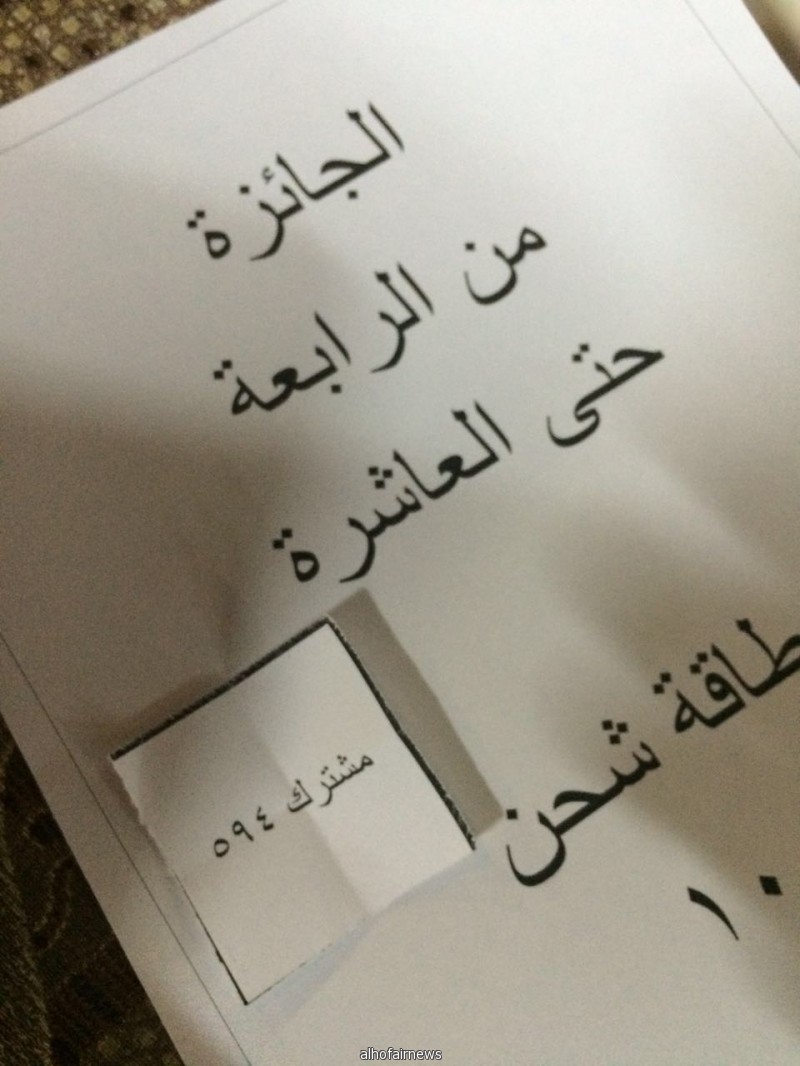 الجائزة
من الرابعة
حتى العاشرة
طاقة شحن
١٠
مشترك ٥٩٤
alhofairnews